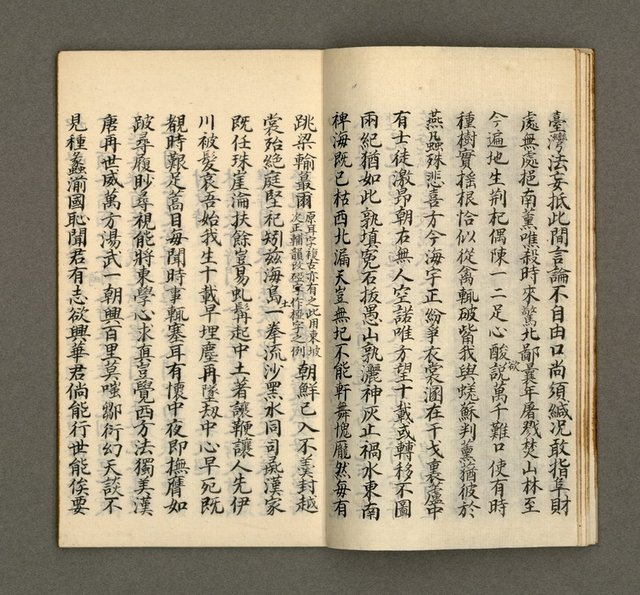 臺灣法安抵此間言論不自由口尚須緘况敢指阜財
處無處挹南薰唯殺時來驚北鄙曩年屠戮焚山林至
今遍地生荆杞偶陳一二足心酸欲說萬千難口使有時
種樹實搖根恰似從禽輒破觜我與螘蘇判薰蕕彼於
燕蝨殊悲喜方今海宇正紛爭衣裳溷在干戈裏蘆中
有士徒激昂朝右無人空諾唯方望十載或轉移不圖
兩紀猶如此孰填冤石拔愚山孰灑神灰止禍水東南
裨海既已枯西北漏天豈無圮不能軒舞愧龐然每有
跳梁輸蕞爾原耳字複古亦有之此用東坡次正輔韻改碪字作椹字之例朝鮮已入不美封越
裳殆絶庭堅祀矧茲海島一拳流沙黑水同司
既任珠崖淪扶餘豈易虬髯起中土著讓鞭讓人先伊
川被髮哀吾始我生十載早埋塵再墮劫中心早死既
覩時艱足蒿目每聞時事輒塞耳有懷中夜即撫膺如
跛尋履眇尋視能將東學心求真豈覺西方法獨美漢
唐再世威萬方湯武一朝興百里莫嗤鄒衍幻天談不
見種蠡湔國恥聞君有志欲興華君倘能行世能俟要